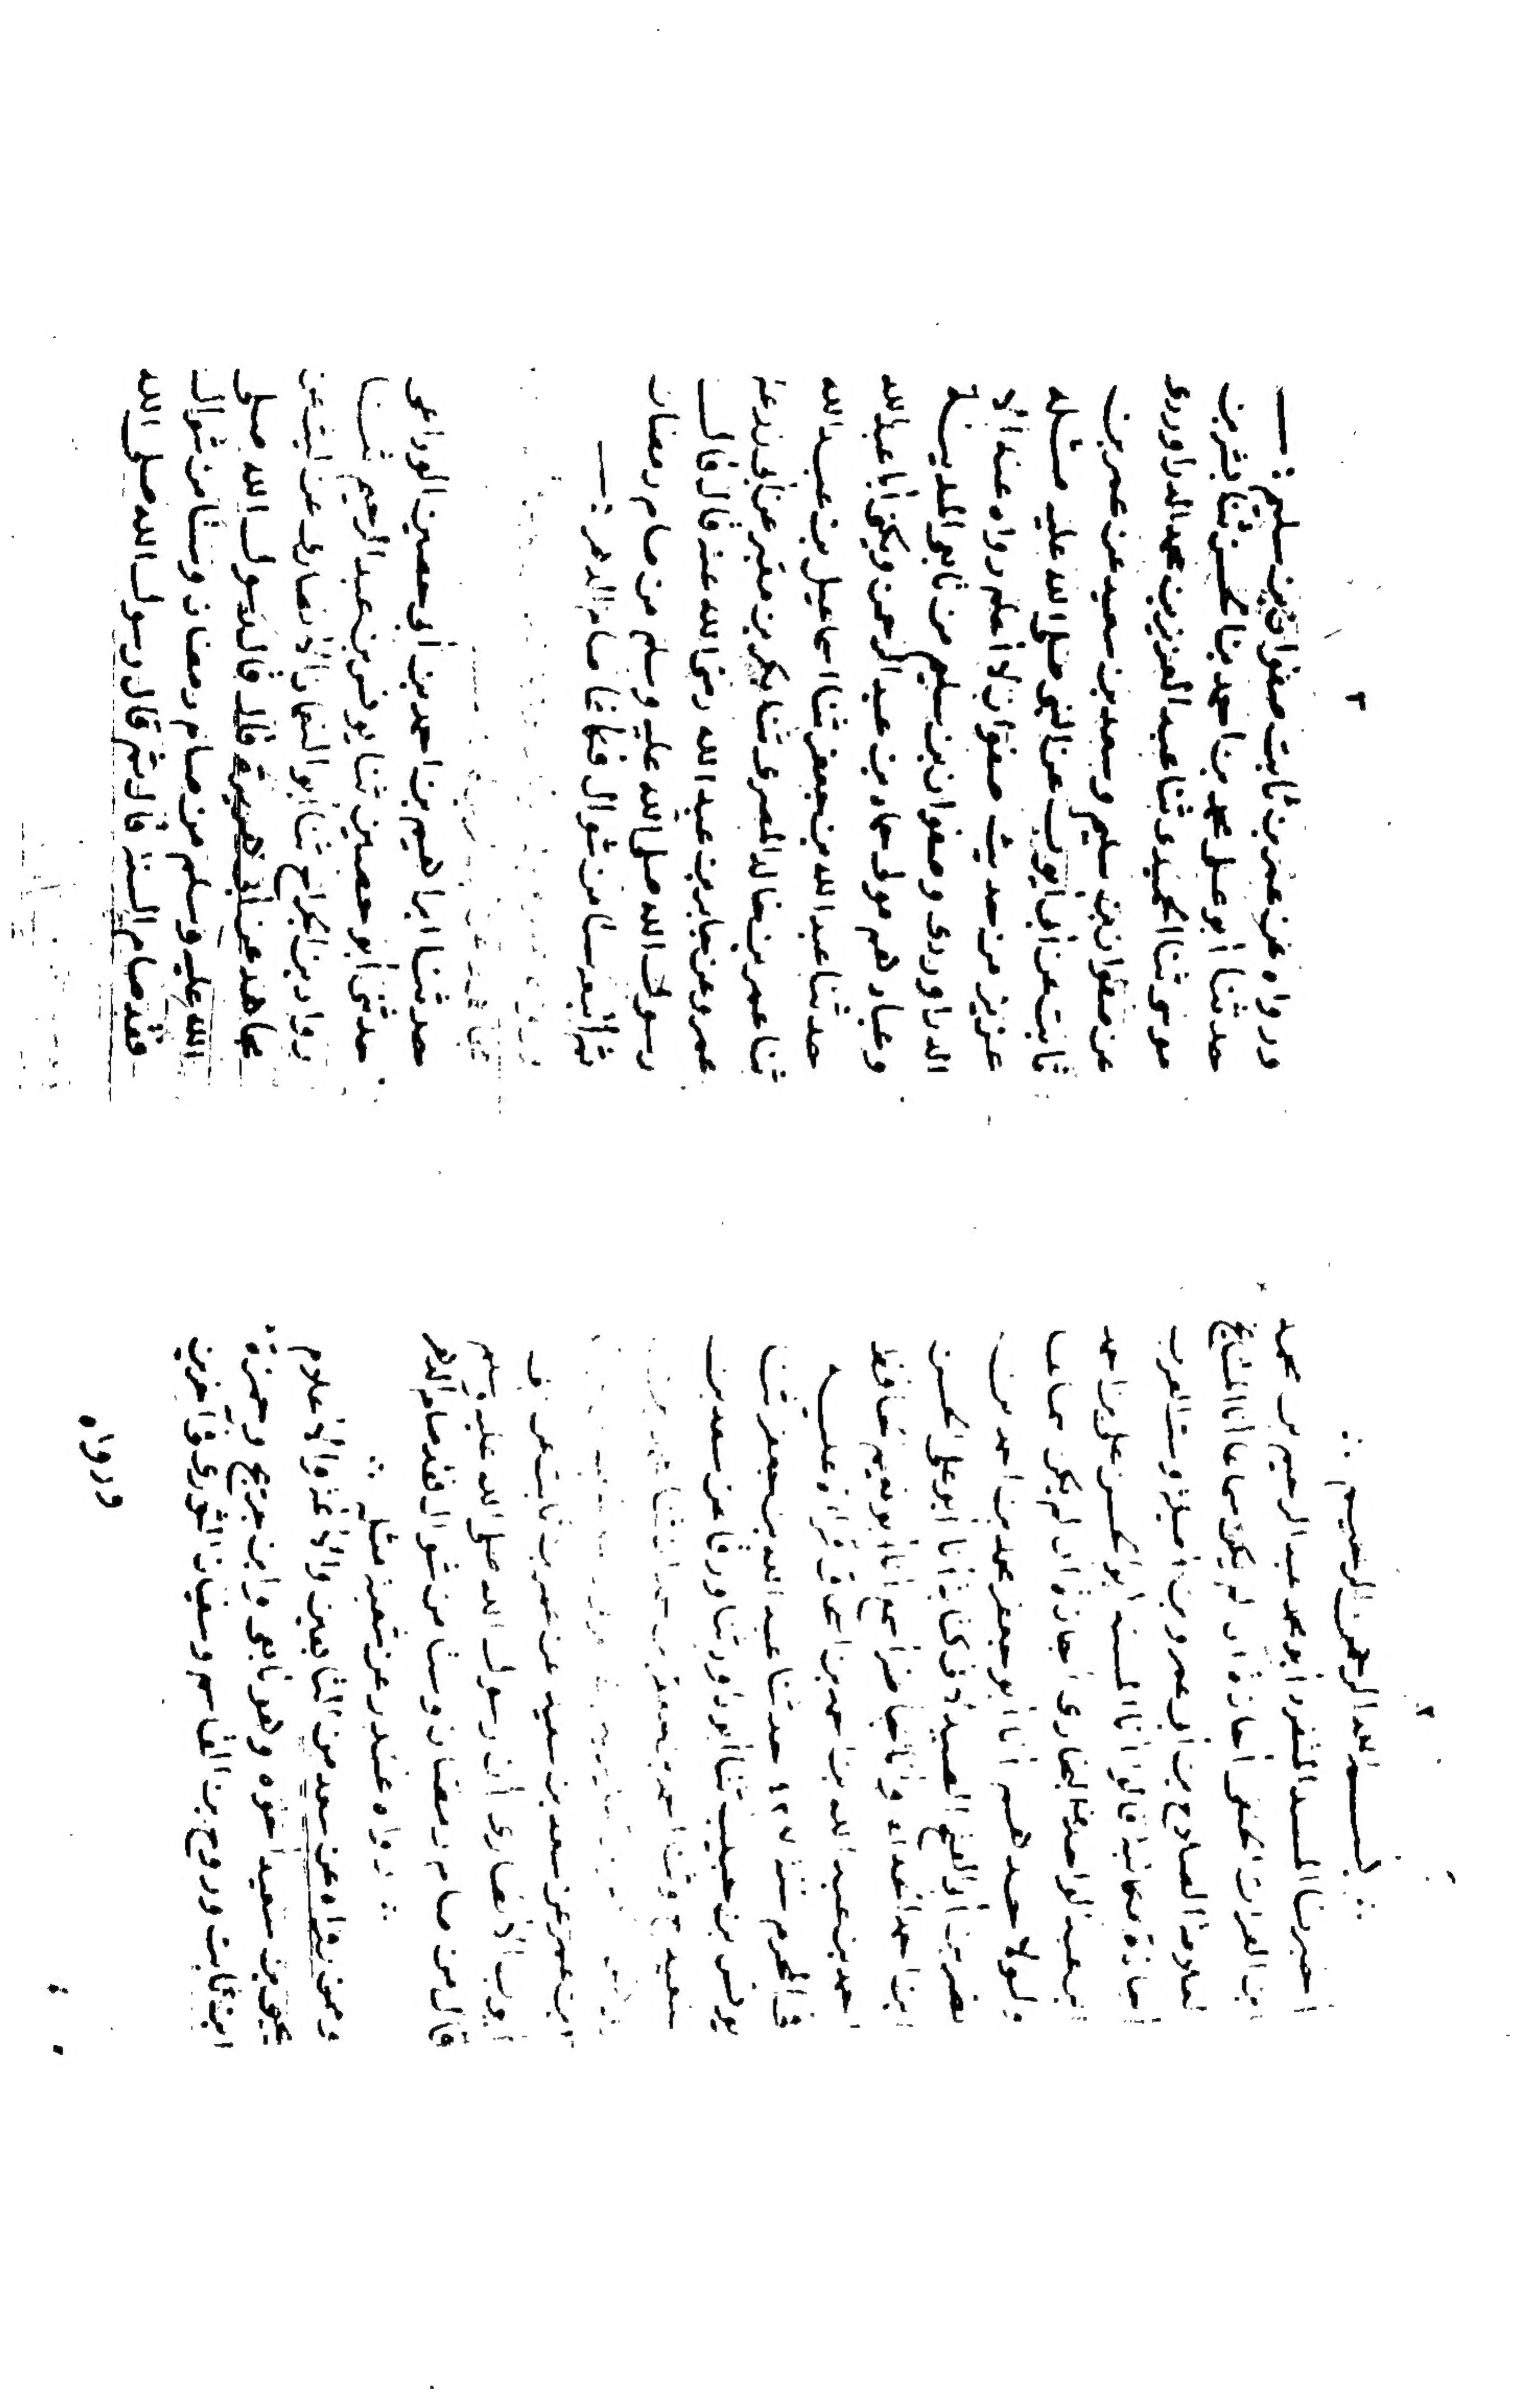 ٢
بسم الله الرحمن الرحيم
اخبرنا المسند المعمر ابو محمد عبد الرحيم بن محمد
بن الفرات الحنفى اجازة ان لم يكن سماعا انا المشايخ
الصلاح بن ابى عمرو بن اميلة وست العرب
اجازة مكاتبة قالوا انا المسند ابو الحسن على بن احمد
بن عبد الواحد البخارى اجازة ان لم يكن سماعا
انا ابو جعفر محمد بن احمد بن
نصر بن ابى الفتح الصيدلانى كتابة انا ابو على الحسن
بن احمد الحداد وانا حاضر اسمع انا ابو نعيم الحافظ
احمد بن عبد الله بن احمد بن اسحاق قراءة عليه
فى المحرم سنة ٤٢٧ حدثنا عبد الله بن جعفر ثنا
يونس بن حبيب ثنا ابو داود ثنا ورقا عن سعد بن
سعيد ح وثنا
ابن عمر عن سعد بن سعيد عن عمر بن ثابت عن ابى
ايوب الانصارى ان رسول الله صلى الله عليه وسلم
قال من صام رمضان وستا من شوال فقد صام الدهر
رواه غندر عن شعبة مثله
وممن رواه عن سعد من التابعين والائمة والاعلام
يحيى بن سعيد اخوه وهو تابعى وابن جريج وقرة
ابن ثابت وروح بن القاسم وسفيان الثورى فى اخرين
ورواه
٣
ورواه عن عمر بن ثابت صفوان بن سليم
حدثنا ابو على محمد بن احمد بن الحسن ثنا بشر بن
موسى ثنا الحميدى ثنا عبد العزيز بن محمد الدراوردى
عن صفوان بن سليم وسعد بن سعيد عن عمر بن
ثابت عن ابى ايوب عن النبى صلى الله عليه مثله
عزيز من حديث صفوان لا اعلم رواه عنه الا
الدراوردى وصفوان بن سليم من تابعى المدينة
وعبادهم مولى حماد بن عبد الرحمن ويكنى ابا عبد الله
حدثنا عبد الله بن جعفر ثنا اسماعيل بن عبد الله
ثنا عمر بن خالد المصرى ثنا بكر بن مضر عن ابى زرعة
عمرو عن جابر بن عبد الله رضى الله عنه قال قال
رسول الله صلى الله عليه وسلم من صام رمضان
ثم اتبعه ستا من شوال فكانما صام الدهر
حدثنا ابراهيم بن احمد بن ابى حصين الوادعى
حدثنى ابو حصين ثنا يونس بن عبد الرحيم ثنا
رواد بن الجراح ثنا ابو النعمان الانصارى عن ليث عن
مجاهد عن ابى هريرة قال قال رسول الله صلى
الله عليه وسلم من صام رمضان وستا من شوال
فقد صام السنة قال ثم قال رسول الله صلى الله